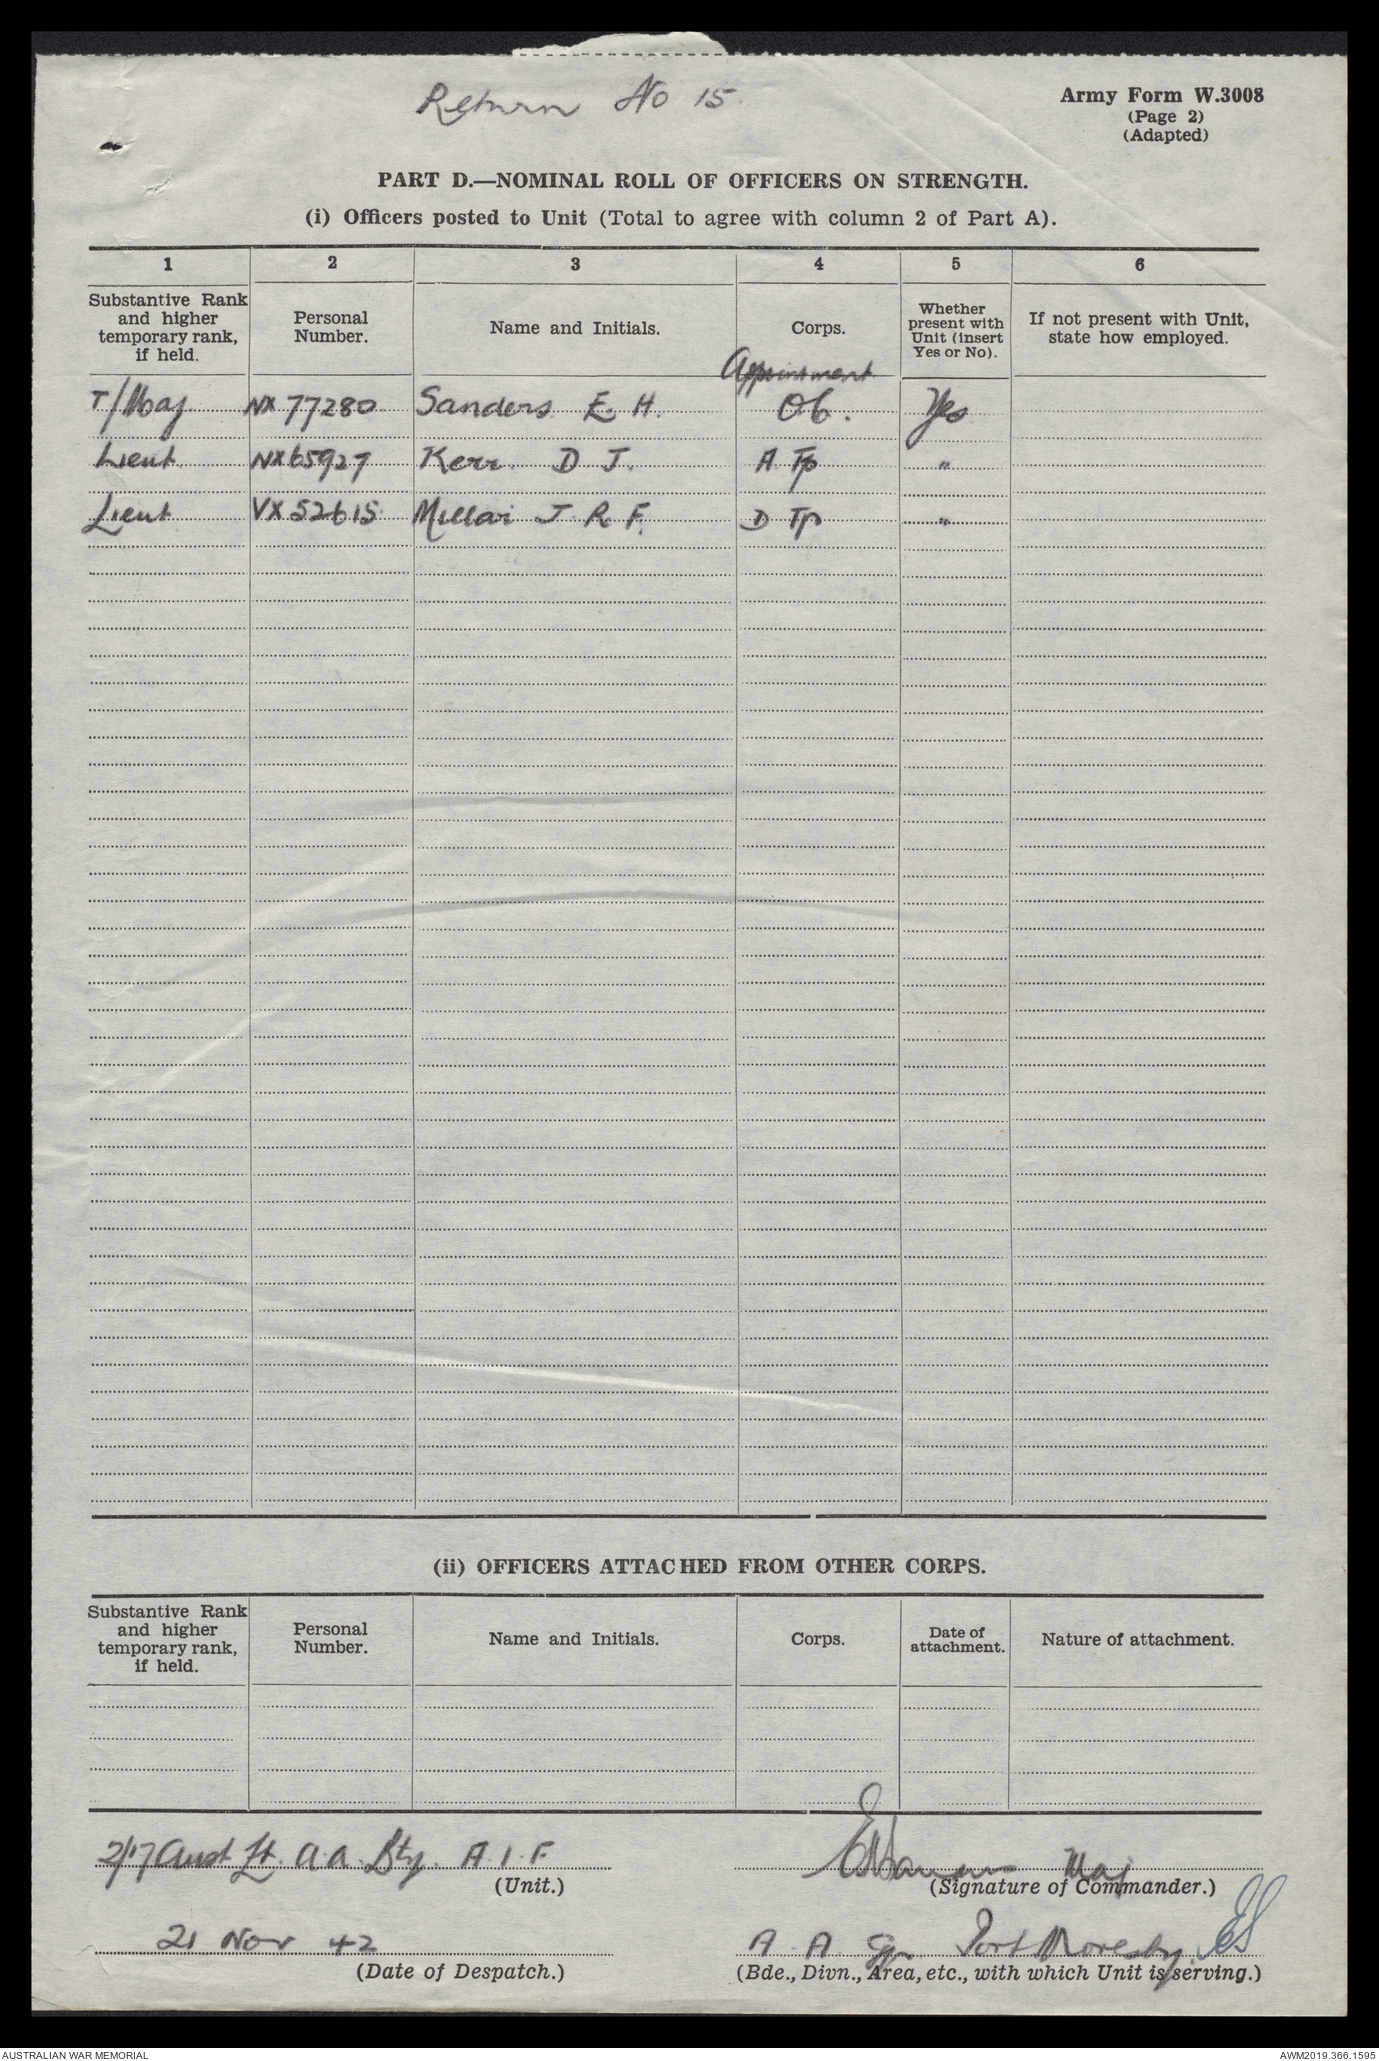 Return No 15
Army Form W.3008
(Page 2)
(Adapted)
PART D.—NOMINAL ROLL OF OFFICERS ON STRENGTH.
(i) Officers posted to Unit (Total to agree with column 2 of Part A).
1 2 3 4 5 6
Substantive Rank and higher temporary rank, if held. Personal Number. Name and Initials. Corps. Whether present with Unit (insert Yes or No). If not present with Unit, state how employed.
Appointment
T/Maj NX 77280 Sanders E. H. OC. Yes
Lieut NX65927 Kerr D J. A Tp "
Lieut VX 52615 Millar J R F. D Tp "
(ii) OFFICERS ATTACHED FROM OTHER CORPS.
Substantive Rank and higher temporary rank, if held. Personal Number. Name and Initials. Corps. Date of attachment. Nature of attachment.
2/17 Aust Lt. A A Bty. A I F
Maj
(Unit.)
(Signature of Commander.)
21 Nov 42
A A Gp Port Moresby ES
(Date of Despatch.)
(Bde., Divn., Area, etc., with which Unit is serving.)
AUSTRALIAN WAR MEMORIAL
AWM2019.366.1595